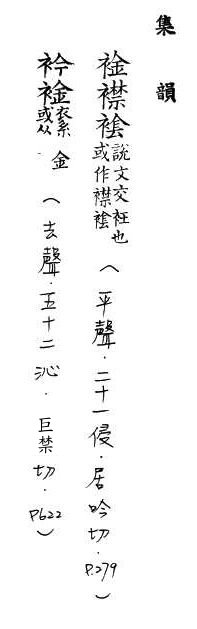 集韻
䘳襟 說文交衽也或作襟 (平聲．二十一侵．居吟切．P.279)
衿䘳 衣系或从金 (去聲．五十二沁．巨禁切．P622)